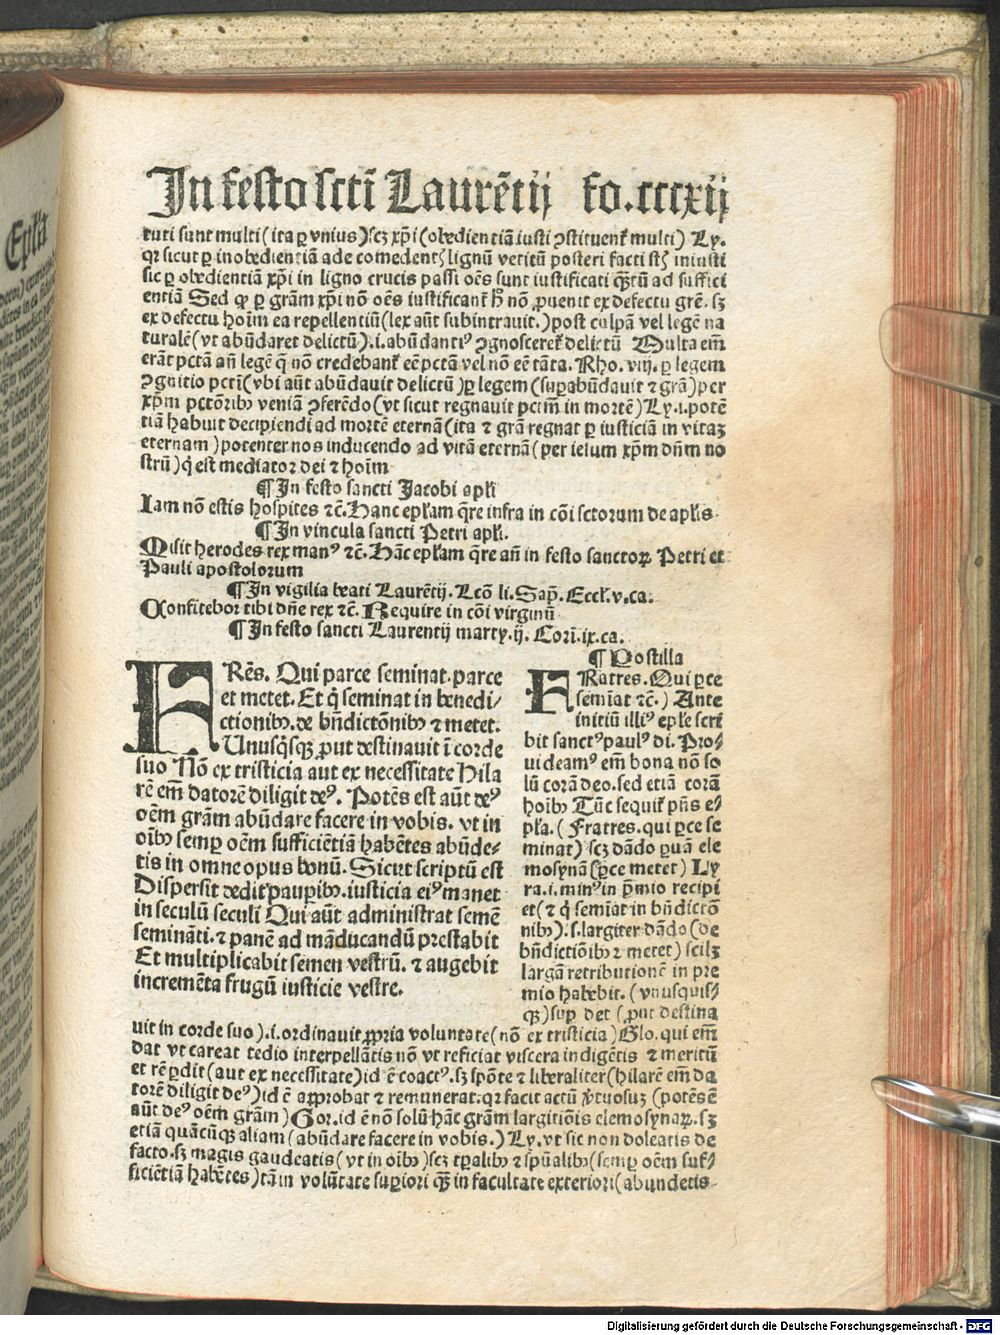 In festo scti Laurētij fo.cccxij
tuti sunt multi (ita ꝑ vnius) scꝫ xp̄i (obedientiā iusti ꝯstituent̄ multi) Ly.
qr sicut ꝑ inobedientiā ade comedent̄ lignū vetitū posteri facti st̄ iniusti
sic ꝑ obedientiā xp̄i in ligno crucis passi oēs sunt iustificati qꝫtū ad suffici
entiā Sed qꝫ ꝑ grām xp̄i nō oēs iustificant̄ h̄ nō ꝓuenit ex defectu grē. sꝫ
ex defectu hoīm ea repellentiū (lex aūt subintrauit.) post culpā vel legē na
turalē (vt abūdaret delictū) .i. abūdantiꝰ ꝯgnosceret̄ delictū Multa em̄
erāt pctā añ legē q̄ nō credebant̄ eē pctā vel nō eē tāta. Rho. viij. ꝑ legem
ꝯgnitio pctī (vbi aūt abūdauit delictū) ꝑ legem (suꝑabūdauit ⁊ grā) per
xp̄m pctōribꝰ veniā ꝯferēdo (vt sicut regnauit pctm̄ in mortē) Ly .i. potē
tiā habuit decipiendi ad mortē eternā (ita ⁊ grā regnat ꝑ iusticiā in vitaꝫ
eternam) potenter nos inducendo ad vitā eternā (per iesum xp̄m dn̄m no
strū) q̄ est mediator dei ⁊ hoīm
¶ In festo sancti Jacobi apl̄i
Iam nō estis hospites ⁊c̄. Hanc epl̄am q̄re infra in cōi sctorum de apl̄is
¶ In vincula sancti Petri apl̄i.
Misit herodes rex manꝰ ⁊c̄. Hāc epl̄am q̄re añ in festo sanctoꝝ Petri et
Pauli apostolorum
¶ In vigilia beati Laurētij. Lcō li. Sap̄. Eccl̄i. v. ca.
Confitebor tibi dn̄e rex ⁊c̄. Require in cōi virginū
¶ In festo sancti Laurentij marty. ij. Cori. ix. ca.
FRēs. Qui parce seminat. parce
et metet. Et q̄ seminat in benedi⸗
ctionibꝰ. de bn̄dictōnibꝰ ⁊ metet.
Unusq̄sqꝫ ꝓut destinauit ī corde
suo Nō ex tristicia aut ex necessitate Hila
rē em̄ datorē diligit deꝰ. Potēs est aūt deꝰ
oēm grām abūdare facere in vobis. vt in
oībꝰ semꝑ oēm sufficiētiā habētes abūde⸗
tis in omne opus bonū. Sicut scriptū est
Dispersit dedit pauꝑibꝰ. iusticia eiꝰ manet
in seculū seculi Qui aūt administrat semē
semināti. ⁊ panē ad māducandū prestabit
Et multiplicabit semen vestrū. ⁊ augebit
incremēta frugū iusticie vestre.
¶ Postilla
FRatres. Qui ꝑce
semīat ⁊c̄.) Ante
initiū illiꝰ epl̄e scri
bit sanctꝰ paulꝰ di. Pro⸗
uideamꝰ em̄ bona nō so
lū corā deo. sed etiā corā
hoībꝰ Tūc sequit̄ pn̄s e⸗
pl̄a. (Fratres. qui ꝑce se
minat) scꝫ dādo ꝑuā ele
mosynā (ꝑce metet) Ly
ra .i. minꝰ in p̄mio recipi
et (⁊ q̄ semīat in bn̄dictō
nibꝰ) .s. largiter dādo (de
bn̄dictiōibꝰ ⁊ metet) scilꝫ
largā retributionē in pre
mio habebit. (vnusquis⸗
qꝫ) suꝑ det (ꝓut destina
uit in corde suo) .i. ordinauit ꝓpria voluntate (nō ex tristicia) Glo. qui em̄
dat vt careat tedio interpellātis nō vt reficiat viscera indigētis ⁊ meritū
et rē ꝑdit (aut ex necessitate) id ē coactꝰ. sꝫ spōte ⁊ liberaliter (hilarē em̄ da
torē diligit deꝰ) id ē approbat ⁊ remunerat. qr facit actū v̓tuosuꝫ (potēs ē
aūt deꝰ oēm grām) Gor. id ē nō solū hāc grām largitiōis elemosynaꝝ. sꝫ
etiā quācūqꝫ aliam (abūdare facere in vobis.) Ly. vt sic non doleatis de
facto. sꝫ magis gaudeatis (vt in oībꝰ) scꝫ tꝑalibꝰ ⁊ spūalibꝰ (semꝑ oēm suf⸗
ficiētiā habētes) tām volūtate suꝑiori qꝫ in facultate exteriori (abundetis
Digitalisierung gefördert durch die Deutsche Forschungsgemeinschaft - DFG